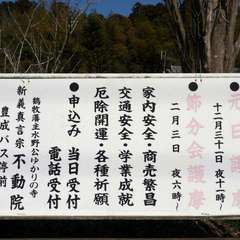 元旦護摩
十二月三十一日 夜十一時〜
節分会護摩
二月三日 夜六時〜
家内安全・商売繁昌
交通安全・学業成就
厄除開運・各種祈願
●申込み 当日受付
電話受付
鶴牧藩主水野公ゆかりの寺
新義真言宗 不動院
豊成バス停前